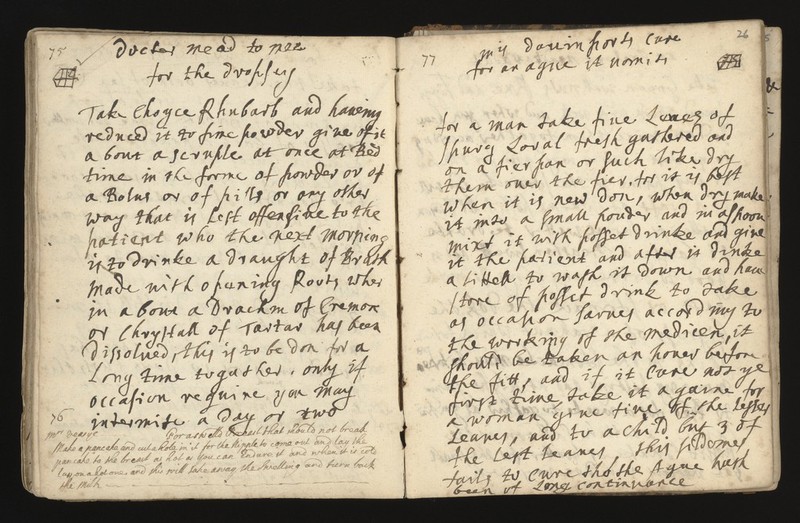 75
Docter mead to mee
for the dropsey
Take Choyce Rhubarb and haveing
reduced it to fine powder give of it
a bout a scruple at once at Bed
time in the forme of powder or of
a Bolus or of pills or any other
way that is Left offensive to the
patient who the next morning
is to drinke a draught of Broth
made with opening Roots wher
in a bout a Drachm of Cremor
or Chrystall of Tartar has been
Dissolved, this is to be don for a
Long time togather, only if
occasion require you may
intermitt a Day or two
76
For a that should not break
Make a pancake and cut a hole in it for the Nipple to come out and lay the
pancake to the breast as hot as you can Indure it and when it is cold
lay on another and this will take away the swelling and turn back
the Milk
26
77
my davinports cure
for an ague it vomits
for a man take five Leaves of
spurg Loral fresh gathered and
on a fier pan or such like dry
them over the fier, for it is best
when it is new don, when dry make
it into a small pouder and in a spoon
mixt it with posset drinke and give
it the patient and after it drinke
a littell to wash it down and have
store of posset drink to take
as occasion sarves according to
the working of the medicen, it
should be taken an hower before
the fitt, and if it cure not ye
first time take it a gaine for
a woman give five of the Lesser
Leaves, and to a child but 3 of
the Lest Leaves this sildomes
fails to cure tho the Ague hath
been of Long continuance